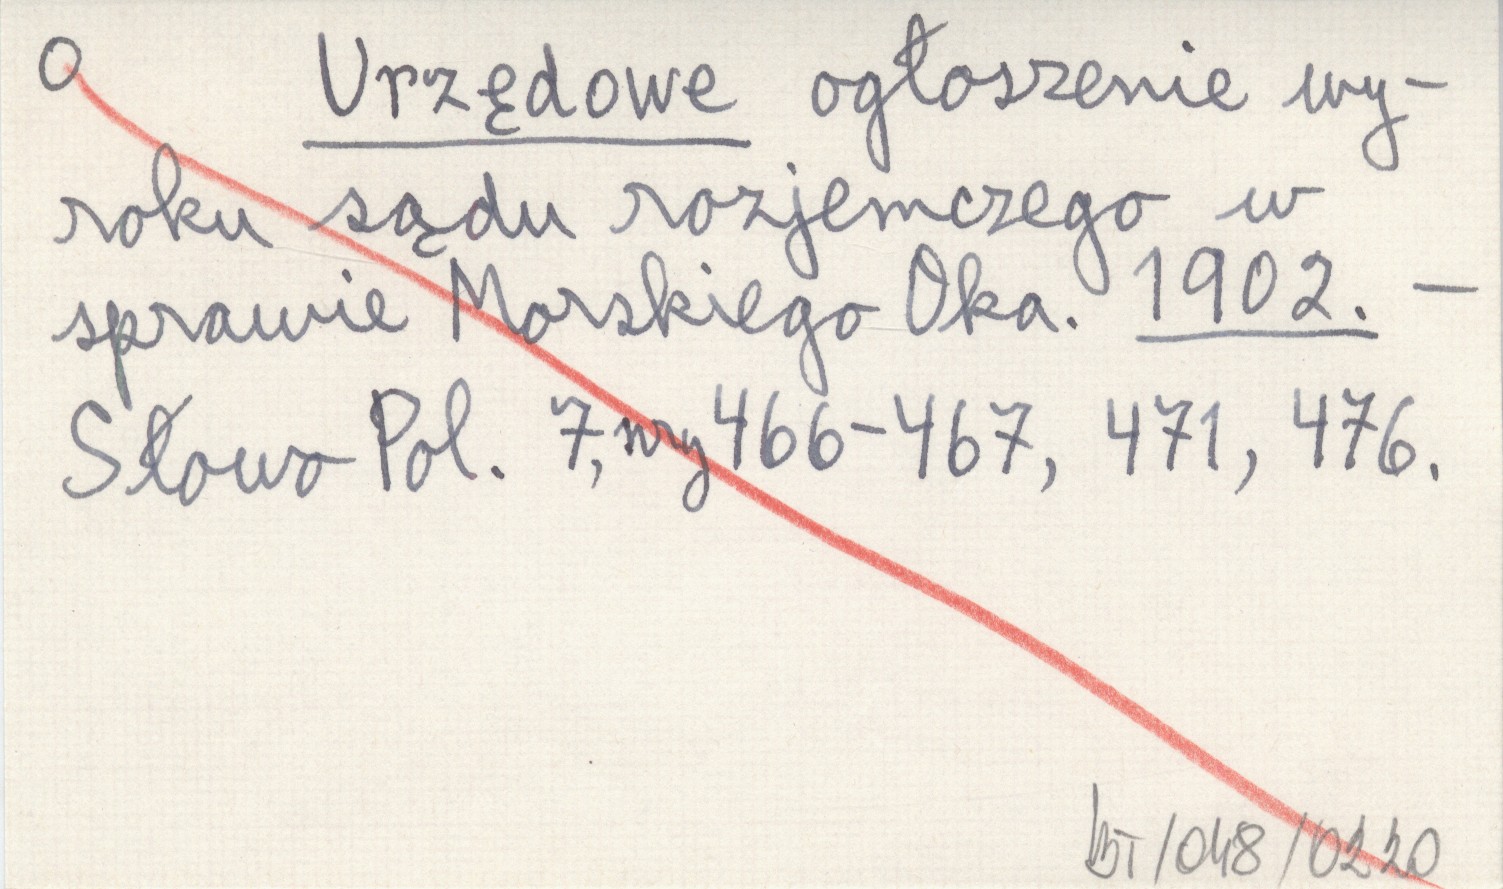 O Urzędowe ogłoszenie wy-
roku sądu rozjemczego w
sprawie Morskiego Oka. 1902. —
Słowo Pol. 7, nry 466-467, 471, 476.
BT/048/0220